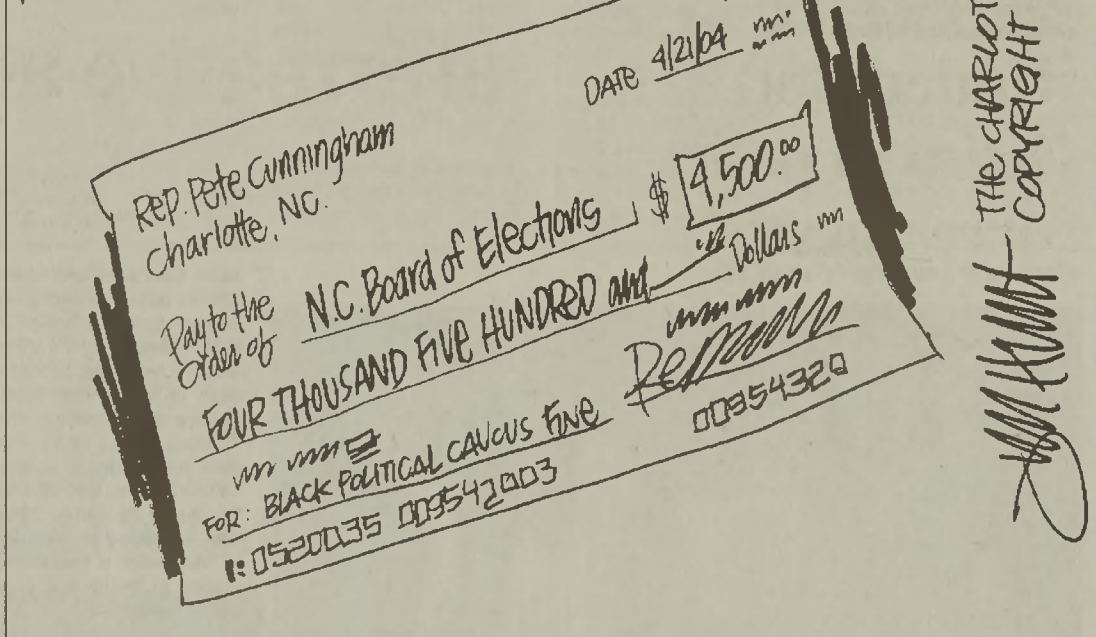 DATE 4/21/04
Rep. Pete Cunningham
Charlotte, NC.
Pay to the
order of
N.C. Board of Elections
$ 4,500.00
FOUR THOUSAND FIVE HUNDRED and
Dollars
FOR: BLACK POLITICAL CAUCUS FINE
0520035 009542003
00954320
THE CHARLOT
COPYRIGHT